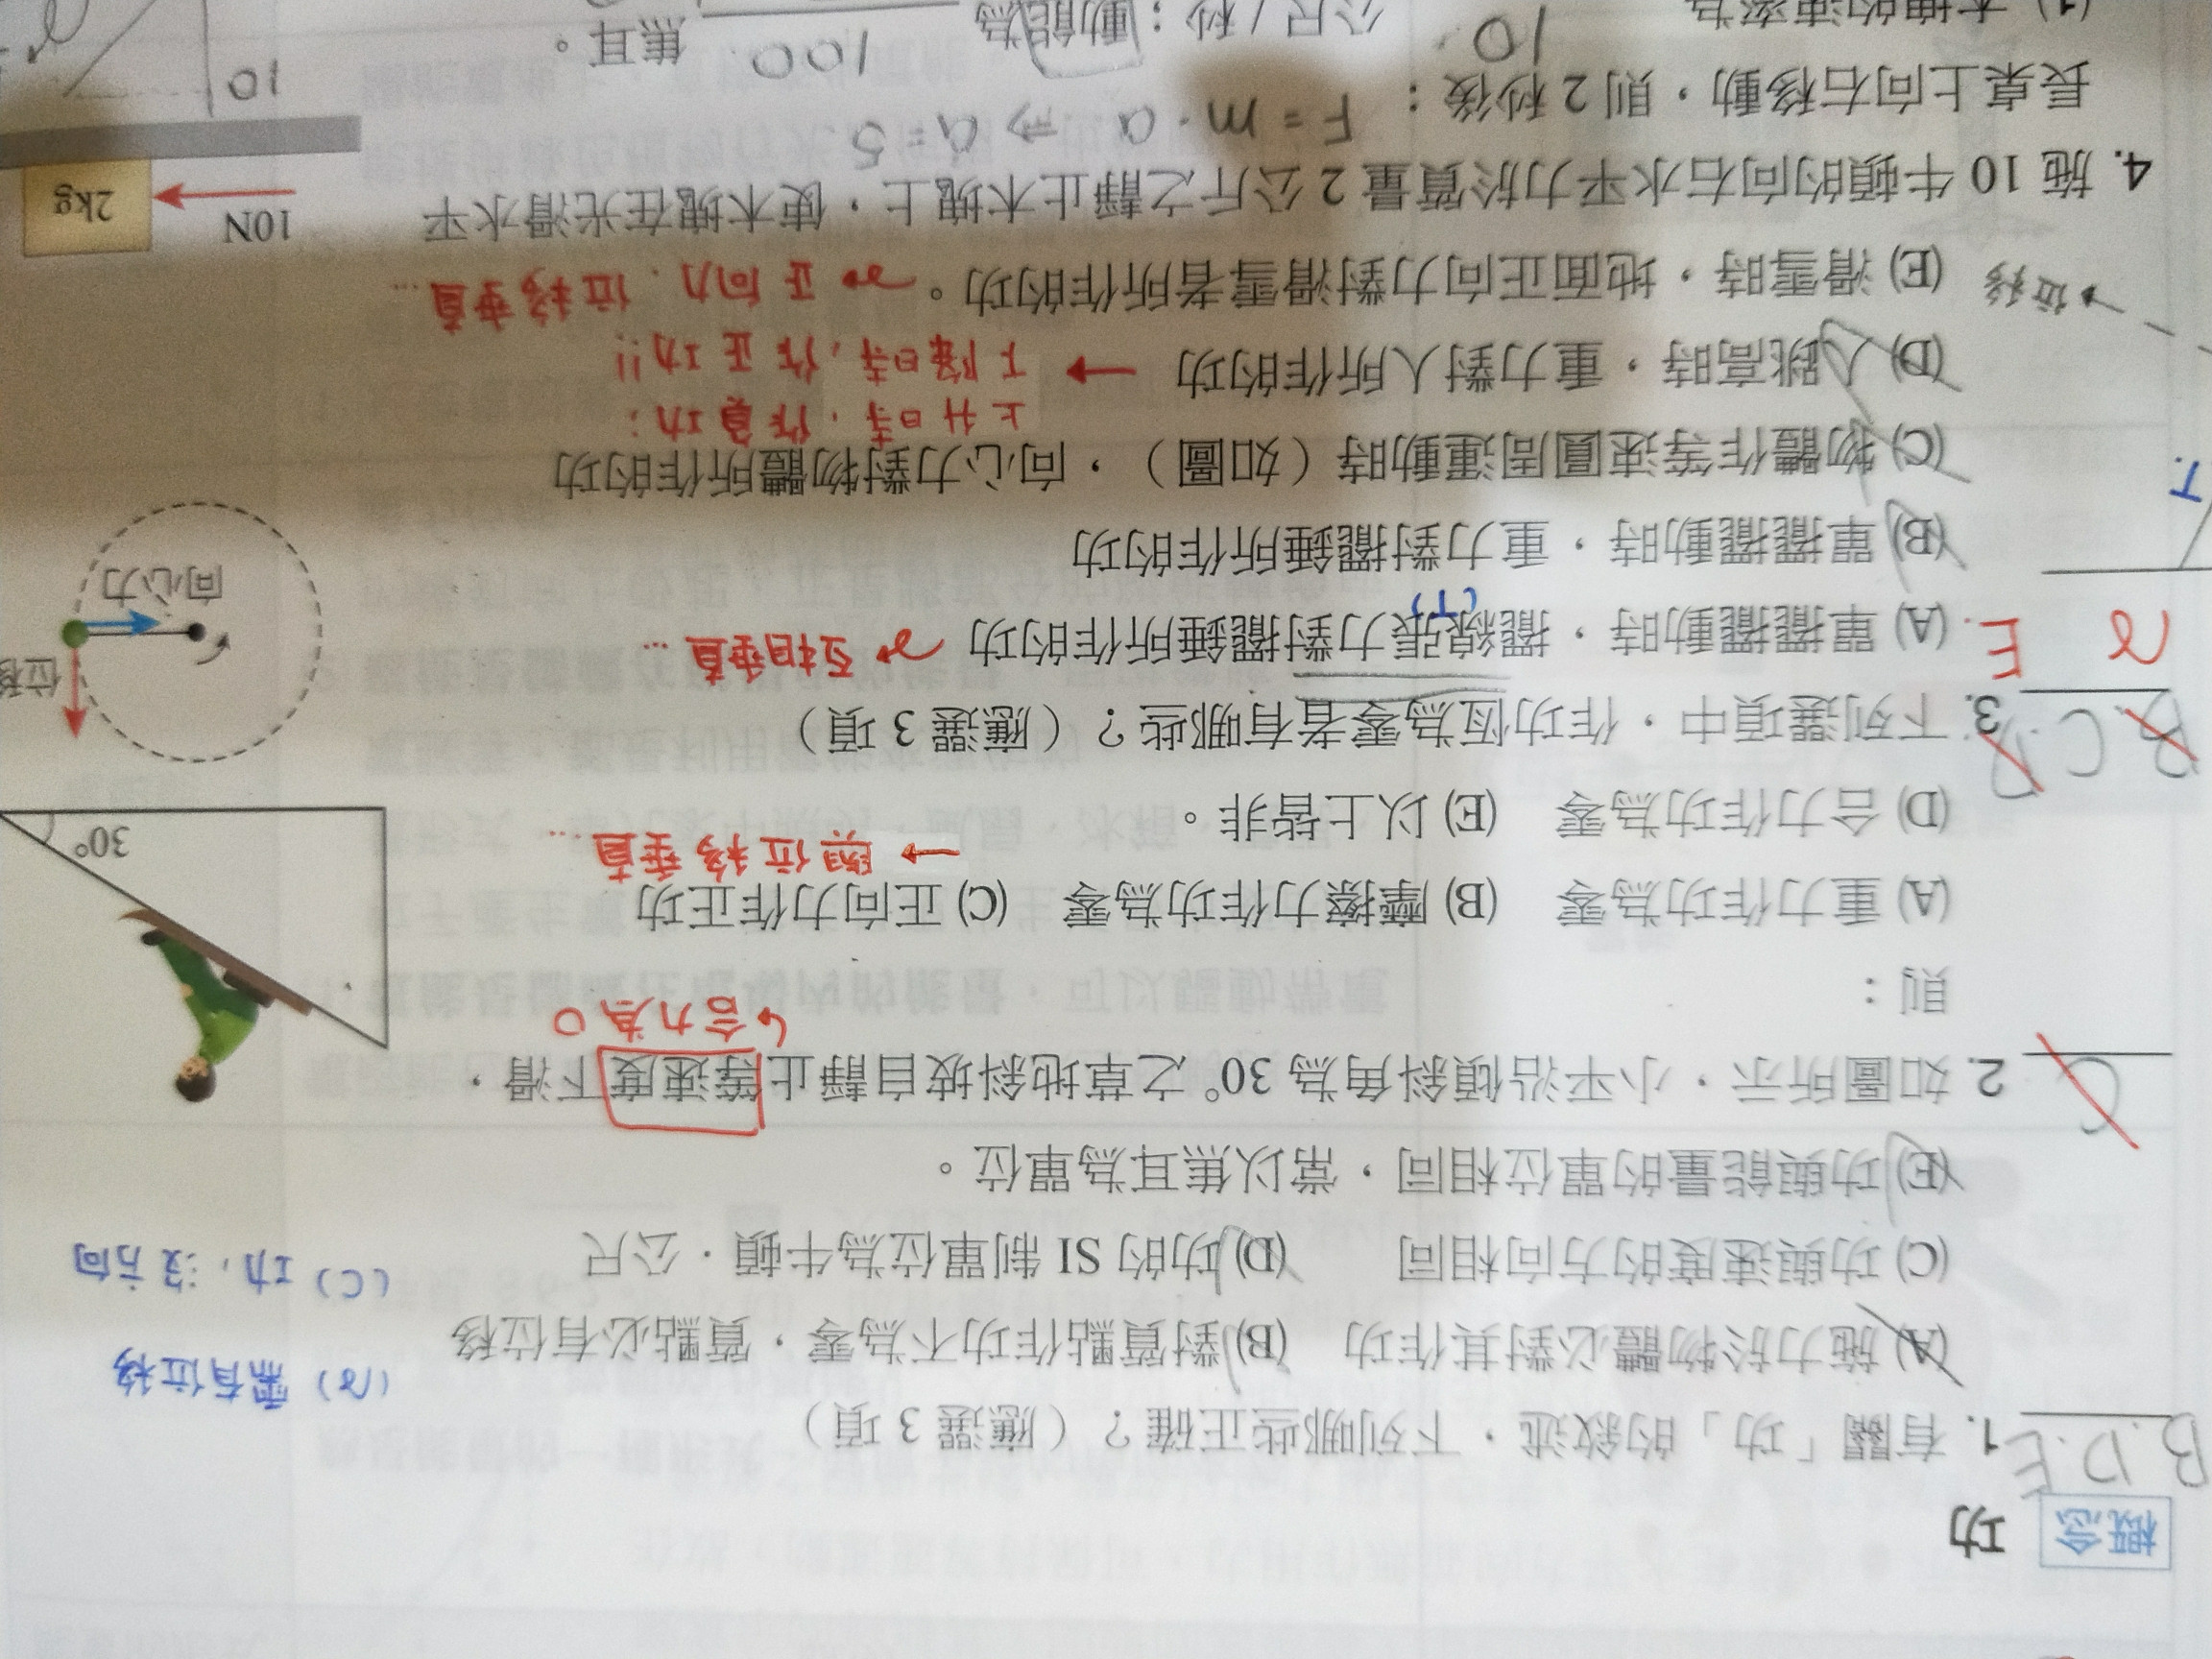 概念 功
B.D.E
1. 有關「功」的敘述，下列哪些正確？（應選 3 項）
(A) 施力於物體必對其作功 (B) 對質點作功不為零，質點必有位移
(a) 需有位移
(C) 功與速度的方向相同 (D) 功的 SI 制單位為牛頓．公尺
(C) 功，沒方向
(E) 功與能量的單位相同，常以焦耳為單位。
C
2. 如圖所示，小平沿傾斜角為 30° 之草地斜坡自靜止等速度下滑，
合力為 0
則：
(A) 重力作功為零 (B) 摩擦力作功為零 (C) 正向力作正功
→ 與位移垂直...
(D) 合力作功為零 (E) 以上皆非。
30°
B.C D
3. 下列選項中，作功恆為零者有哪些？（應選 3 項）
a E.
(A) 單擺擺動時，擺線張力對擺錘所作的功 互相垂直...
(T)
(B) 單擺擺動時，重力對擺錘所作的功
(C) 物體作等速圓周運動時（如圖），向心力對物體所作的功
上升時，作負功；
(D) 人跳高時，重力對人所作的功 → 下降時，作正功!!
(E) 滑雪時，地面正向力對滑雪者所作的功。 正向力．位移垂直...
位移
向心力
T.
位移
4. 施 10 牛頓的向右水平力於質量 2 公斤之靜止木塊上，使木塊在光滑水平
長桌上向右移動，則 2 秒後： F=m·a ⇒ a=5
(1) 木塊的速率為 10 公尺／秒；動能為 100 焦耳。
10N
2kg
10